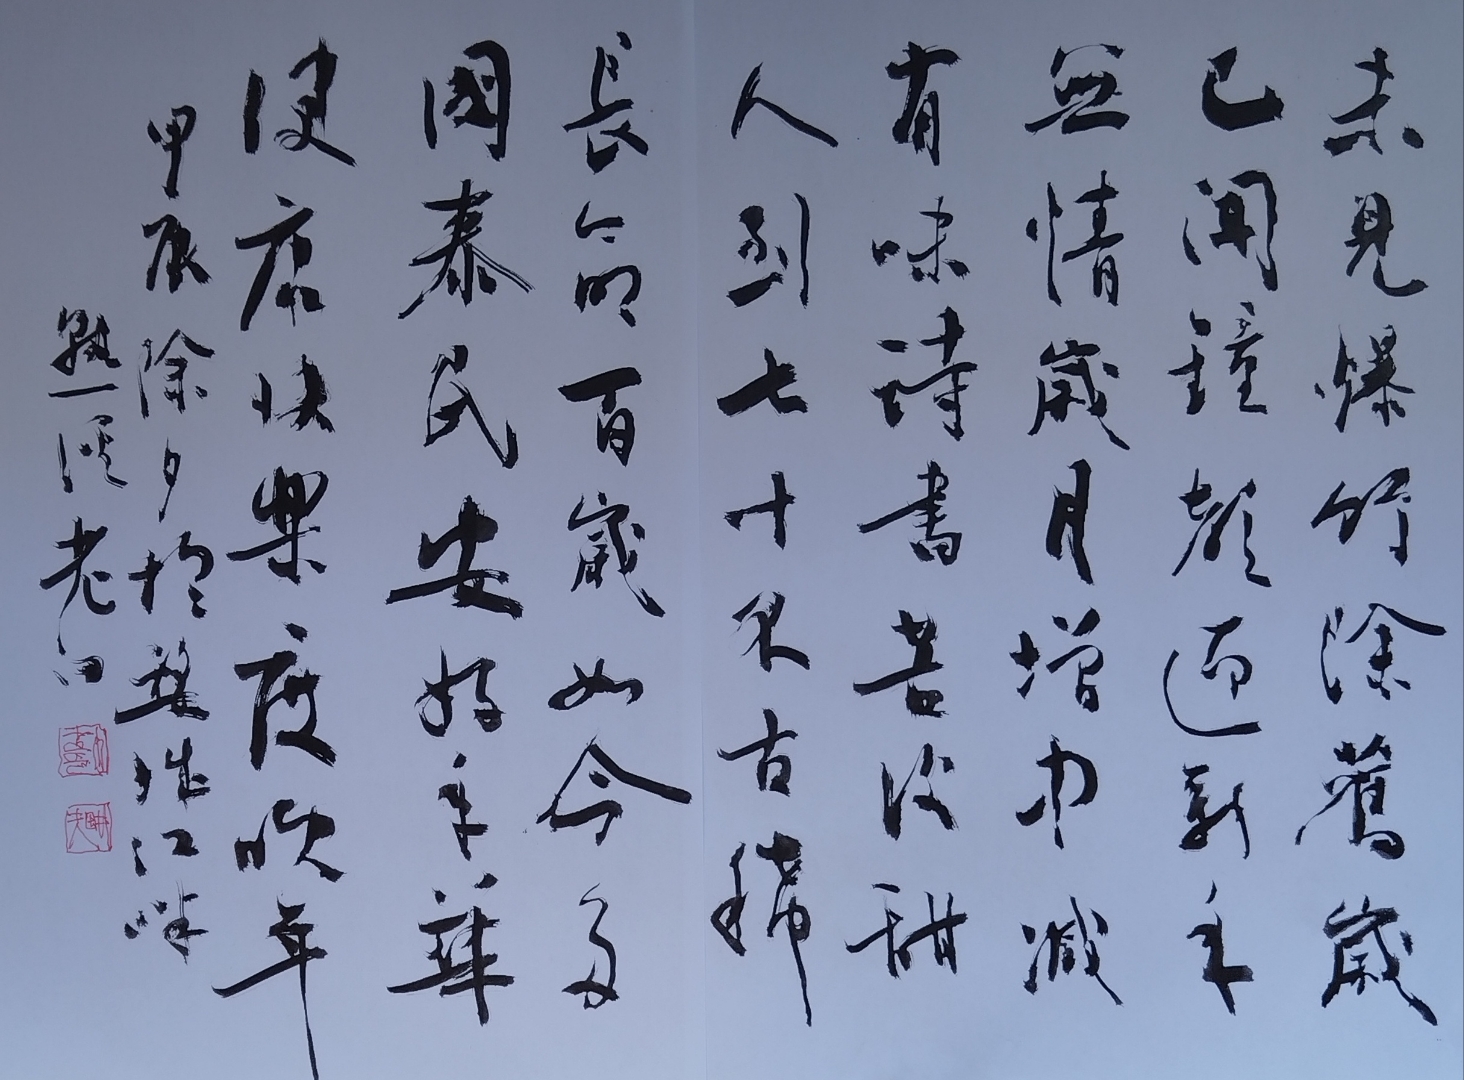 未見爆竹除舊歲
已聞鐘聲迎新年
無情歲月增中減
有味詩書苦後甜
人到七十不古稀
長命百歲如今多
國泰民安好年華
健康快樂度晚年
甲辰除夕於江畔
老